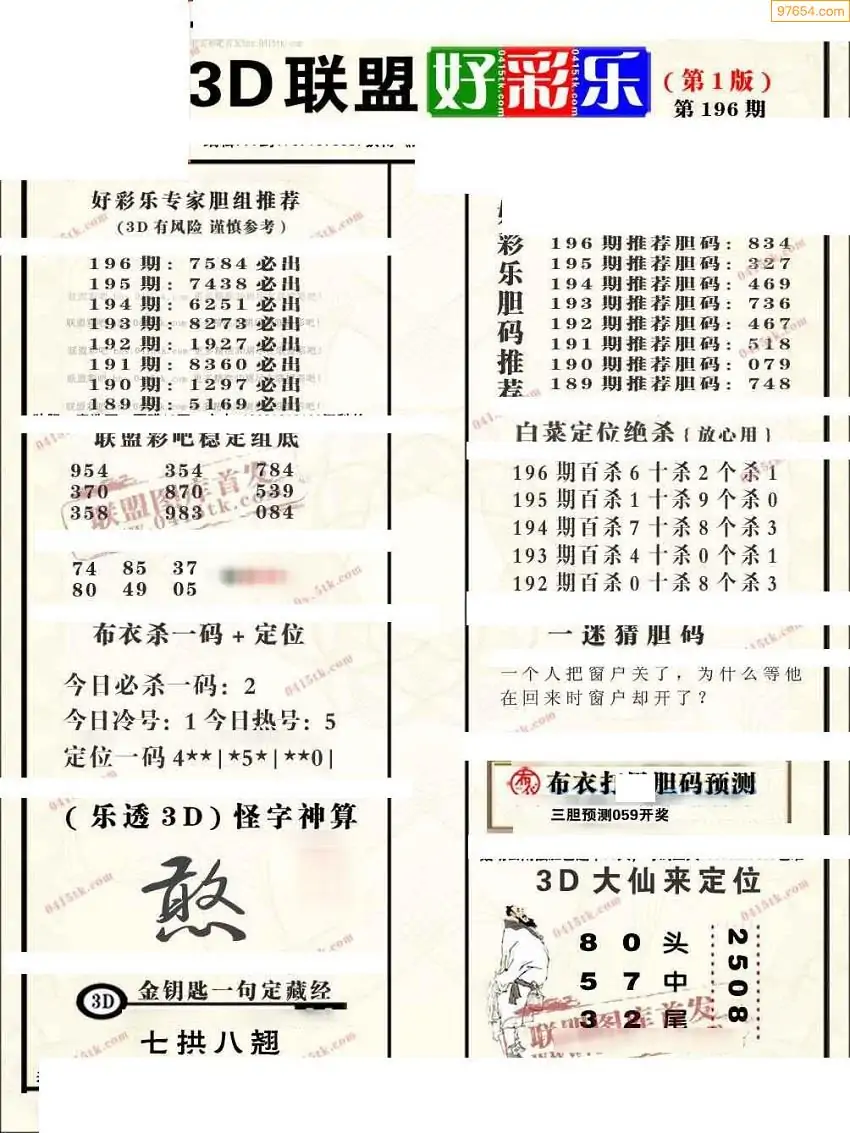 97654.com
3D联盟 好彩乐 (第1版)
第196期
好彩乐专家胆组推荐
(3D有风险 谨慎参考)
196期: 7584必出
195期: 7438必出
194期: 6251必出
193期: 8273必出
192期: 1927必出
191期: 8360必出
190期: 1297必出
189期: 5169必出
联盟彩吧稳定组底
954 354 784
370 870 539
358 983 084
74 85 37
80 49 05
布衣杀一码+定位
今日必杀一码: 2
今日冷号: 1 今日热号: 5
定位一码 4**|*5*|**0|
(乐透3D)怪字神算
憨
3D 金钥匙一句定藏经
七拱八翘
彩乐胆码推荐
196期推荐胆码: 834
195期推荐胆码: 327
194期推荐胆码: 469
193期推荐胆码: 736
192期推荐胆码: 467
191期推荐胆码: 518
190期推荐胆码: 079
189期推荐胆码: 748
白菜定位绝杀{放心用}
196期百杀6十杀2个杀1
195期百杀1十杀9个杀0
194期百杀7十杀8个杀3
193期百杀4十杀0个杀1
192期百杀0十杀8个杀3
一迷猜胆码
一个人把窗户关了，为什么等他
在回来时窗户却开了？
布 布衣 胆码预测
三胆预测059开奖
3D大仙来定位
8 0 头
5 7 中
3 2 尾
2508
联盟图库首发
0415tk.com